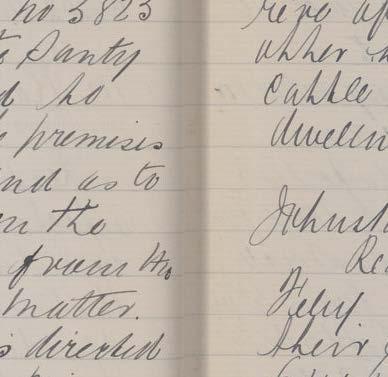 no 3823
to Santy
d ho
premises
and as to
en the
from the
matter.
s directed
repo
other
cattle
dwellin
Johnst
Re
Feby
their